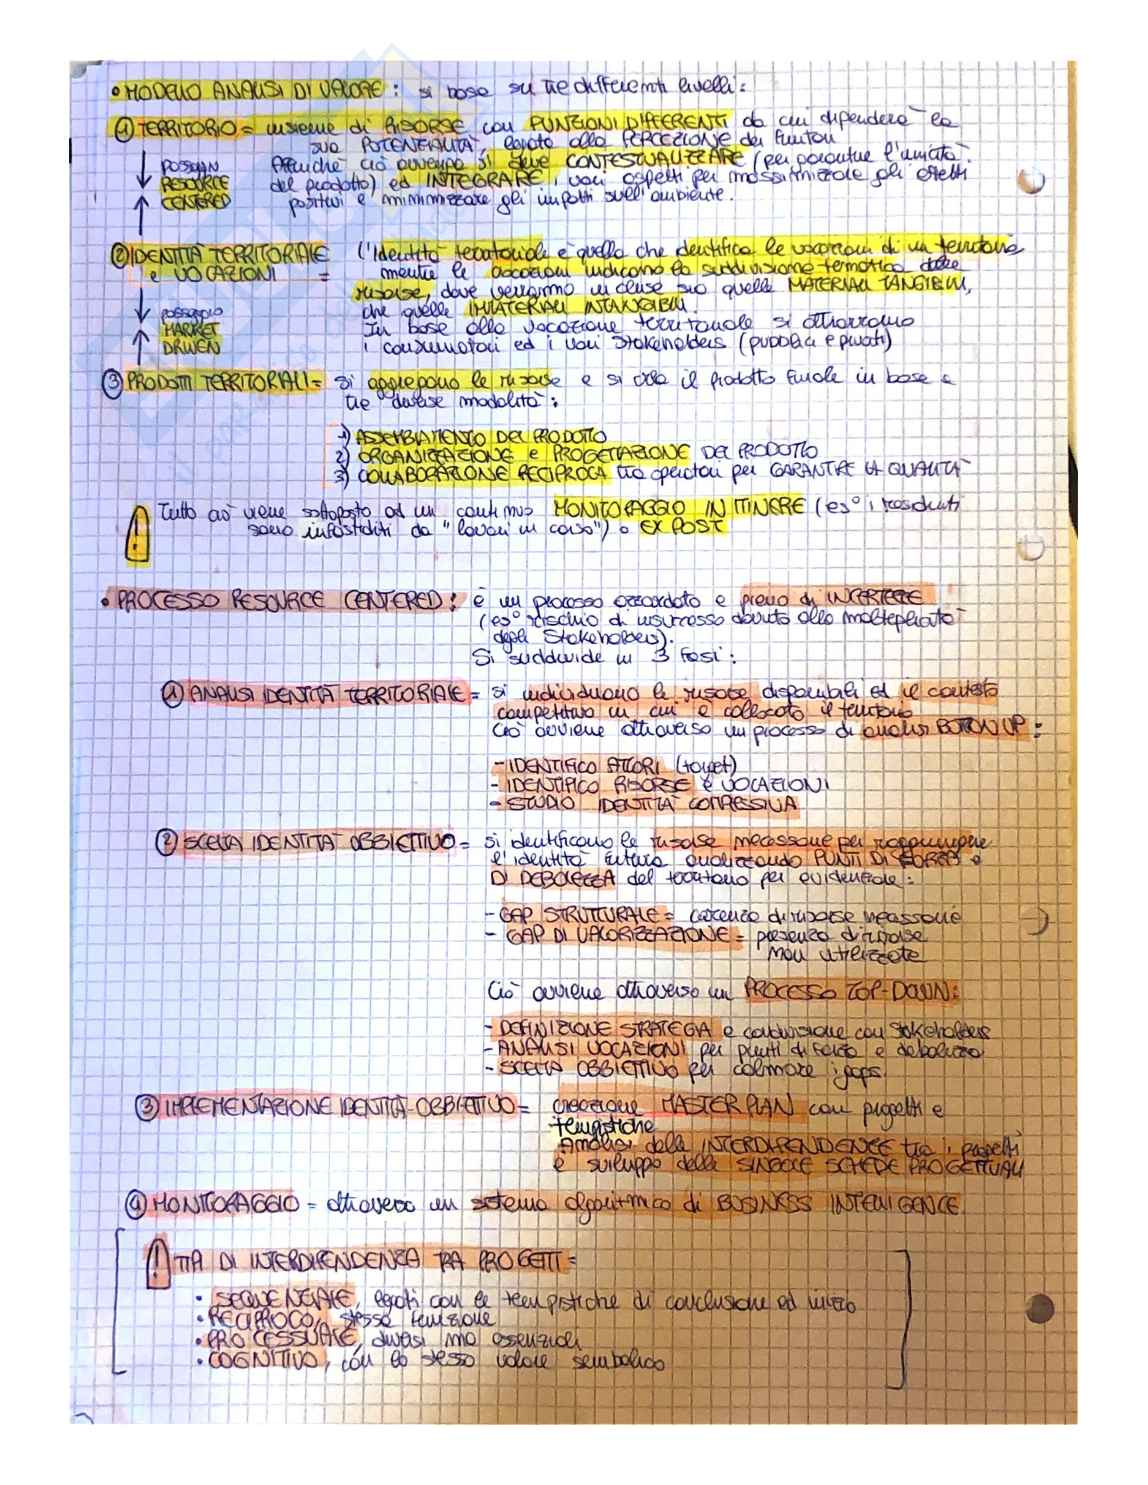 • MODELLO ANALISI DI VALORE: si basa su tre differenti livelli:
① TERRITORIO = insieme di RISORSE con FUNZIONI DIFFERENTI da cui dipenderà la
sua POTENZIALITÀ, legato alla PERCEZIONE dei fruitori
Affinché ciò avvenga si deve CONTESTUALIZZARE (per garantire l'unicità
del prodotto) ed INTEGRARE i vari aspetti per massimizzare gli effetti
positivi e minimizzare gli impatti sull'ambiente.
RESOURCE
CENTERED
② IDENTITÀ TERRITORIALE
e VOCAZIONI =
L'identità territoriale è quella che identifica le vocazioni di un territorio
mentre le vocazioni indicano la suddivisione tematica delle
risorse, dove verranno incluse sia quelle MATERIALI TANGIBILI,
che quelle IMMATERIALI INTANGIBILI.
In base alla vocazione territoriale si attirano
i consumatori ed i vari stakeholders (pubblici e privati)
passaggio
MARKET
DRIVEN
③ PRODOTTI TERRITORIALI = si aggregano le risorse e si crea il prodotto finale in base a
tre diverse modalità:
1) ASSEMBLAMENTO DEL PRODOTTO
2) ORGANIZZAZIONE e PROGETTAZIONE DEL PRODOTTO
3) COLLABORAZIONE RECIPROCA tra operatori per GARANTIRE LA QUALITÀ
! Tutto ciò viene sottoposto ad un continuo MONITORAGGIO IN ITINERE (es° i residenti
sono infastiditi da "lavori in corso") o EX POST
• PROCESSO RESOURCE CENTERED: è un processo azzardato e pieno di INCERTEZZE
(es° rischio di insuccesso dovuto alla molteplicità
degli Stakeholders).
Si suddivide in 3 fasi:
① ANALISI IDENTITÀ TERRITORIALE = si individuano le risorse disponibili ed il contesto
competitivo in cui è collocato il territorio
Ciò avviene attraverso un processo di analisi BOTTON UP:
- IDENTIFICO ATTORI (target)
- IDENTIFICO RISORSE e VOCAZIONI
- STUDIO IDENTITÀ COMPLESSIVA
② SCELTA IDENTITÀ OBBIETTIVO = si identificano le risorse necessarie per raggiungere
l'identità futura analizzando PUNTI DI FORZA e
DI DEBOLEZZA del territorio per evidenziare:
- GAP STRUTTURALE = carenza di risorse necessarie
- GAP DI VALORIZZAZIONE = presenza di risorse
non utilizzate
Ciò avviene attraverso un PROCESSO TOP-DOWN:
- DEFINIZIONE STRATEGIA e condivisione con stakeholders
- ANALISI VOCAZIONI per punti di forza e debolezza
- SCELTA OBBIETTIVO per colmare i gaps.
③ IMPLEMENTAZIONE IDENTITÀ-OBBIETTIVO = creazione MASTER PLAN con progetti e
tempistiche
Analisi delle INTERDIPENDENZE tra i progetti
e sviluppo delle SINGOLE SCHEDE PROGETTUALI
④ MONITORAGGIO = attraverso un sistema algoritmico di BUSINESS INTELLIGENCE.
! DI INTERDIPENDENZA TRA PROGETTI =
• SEQUENZIALE, legati con le tempistiche di conclusione ed inizio
• RECIPROCO, stessa funzione
• PROCESSUALE, diversi ma essenziali
• COGNITIVO, con lo stesso valore simbolico